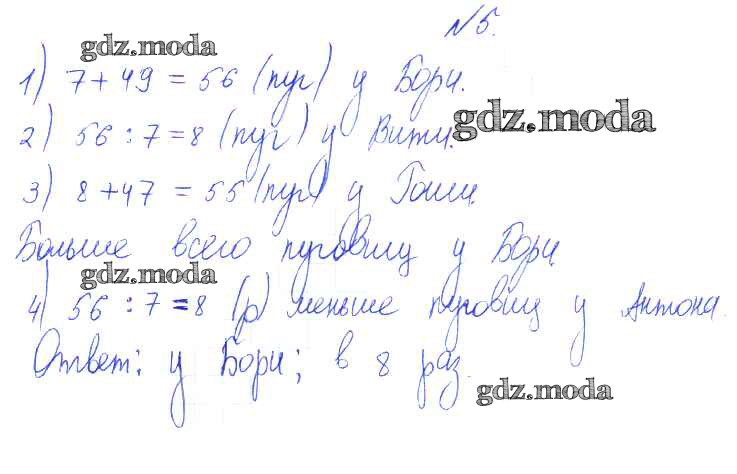 №5.
gdz.moda
1) 7+49 = 56 (пуг) у Бори.
2) 56 : 7 = 8 (пуг) у Вити.
gdz.moda
3) 8+47 = 55 (пуг) у Гоши
Больше всего пуговиц у Бори
gdz.moda
4) 56 : 7 = 8 (р) меньше пуговиц у Антона.
Ответ: у Бори; в 8 раз.
gdz.moda